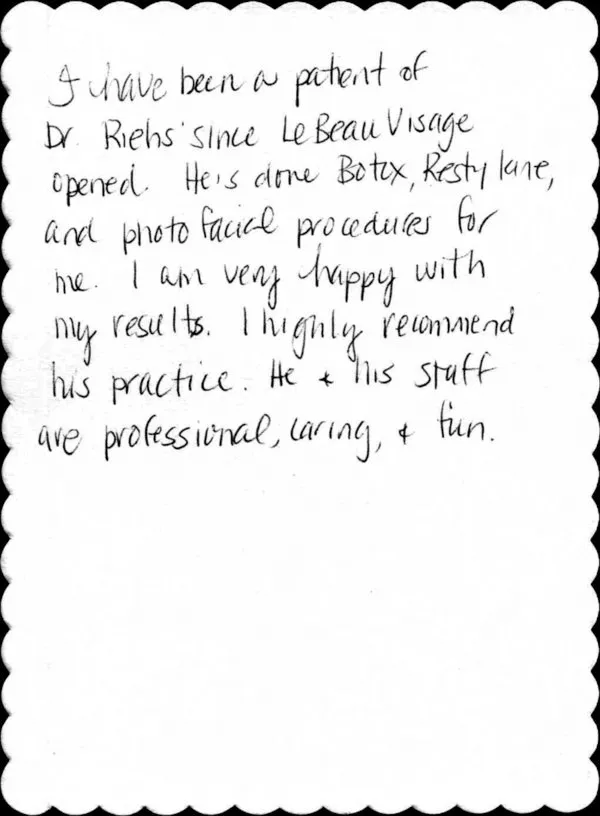 I have been a patient of
Dr. Riehs' since Le Beau Visage
opened. He's done Botox, Restylane,
and photo facial procedures for
me. I am very happy with
my results. I highly recommend
his practice. He + his staff
are professional, caring, + fun.